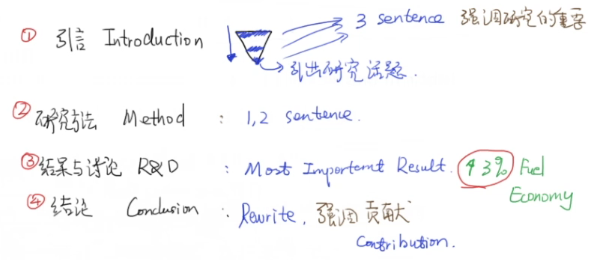 ① 引言 Introduction 3 sentence 强调研究的重要
引出研究话题.
② 研究方法 Method : 1,2 sentence.
③ 结果与讨论 R&D : Most Importernt Result. 43% Fuel
Economy
④ 结论 Conclusion : Rewrite, 强调 贡献
Contribution.